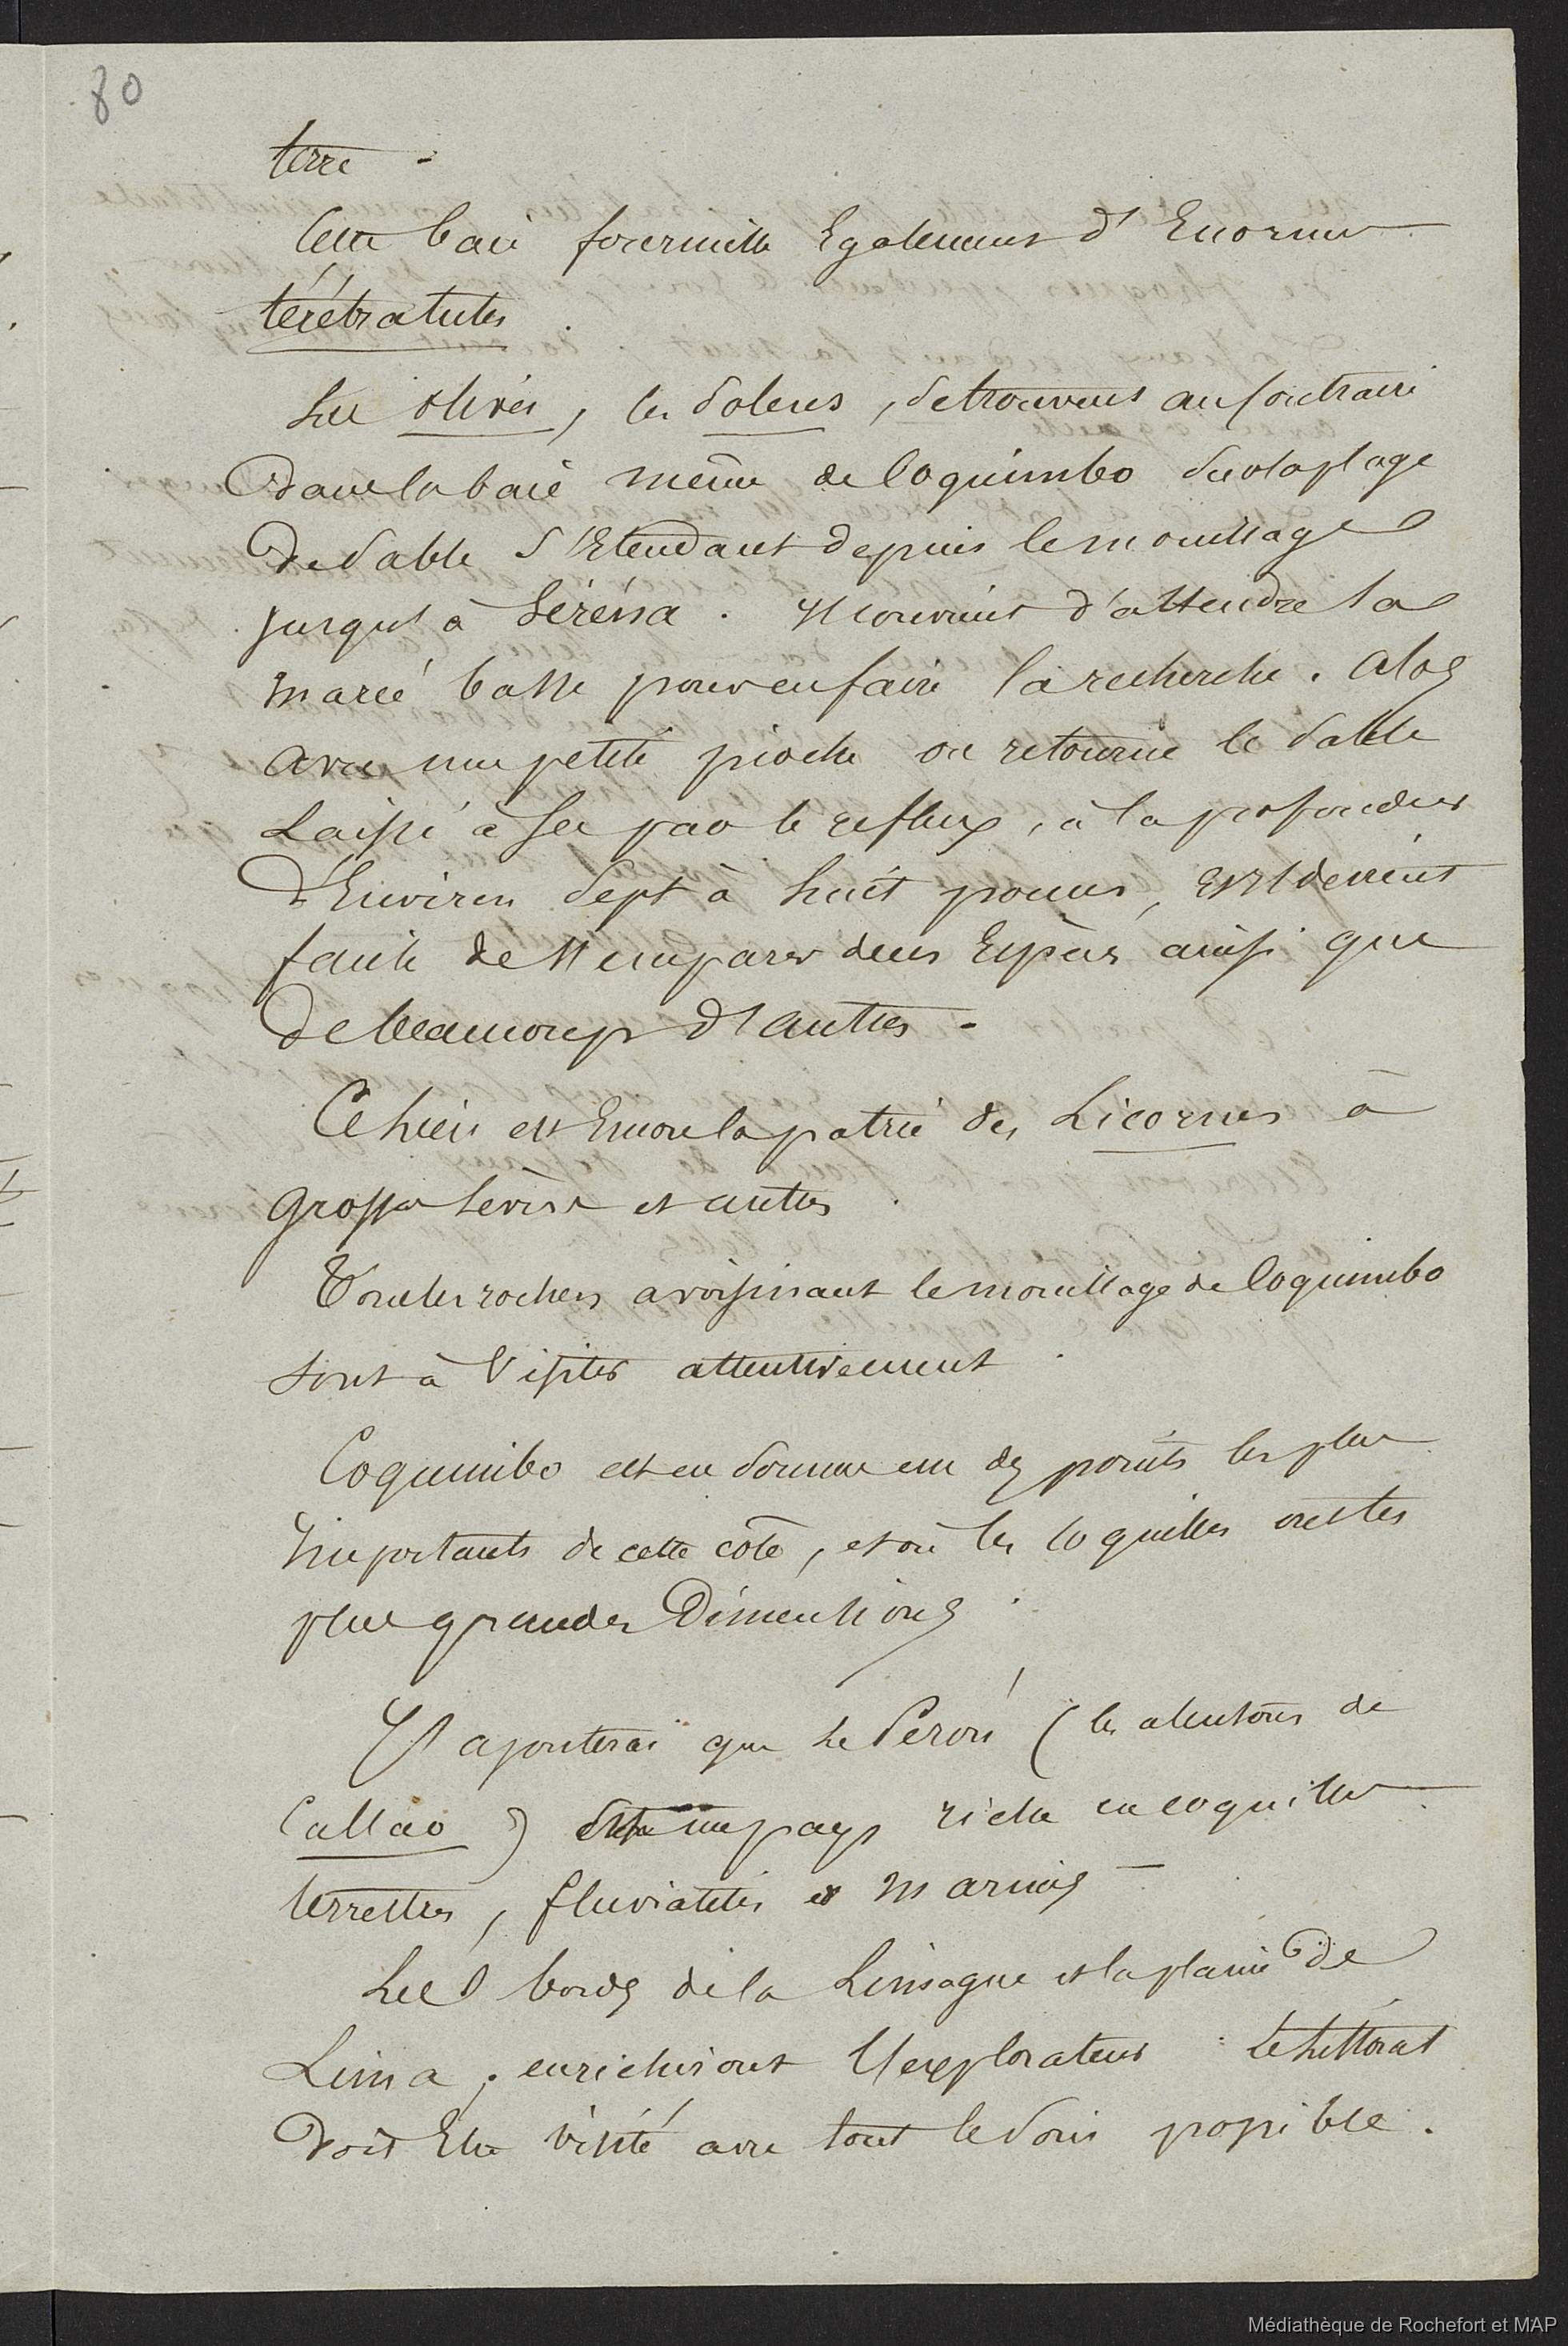 80
terre -
Cette baie fourmille Egalement d'Enormes
térébratules.
Les olives, les Solens, se trouvent au Contraire
Dans la baie même de Coquimbo sur la plage
De Sable S'Etendant depuis le mouillage
jusqu'à Séréna. Il convient d'attendre la
marée basse pour en faire la recherche. Alors
avec une petite pioche on retourne le Sable
Laissé à Sec par le reflux, à la profondeur
D'Environ Sept à huit pouces, et il devient
facile de s'emparer de ces Espèces ainsi que
de beaucoup d'autres -
Ce lieu est Encore la patrie des Licornes à
Grosses Lèvres et autres
Tous les rochers avoisinant le mouillage de Coquimbo
Sont à Visiter attentivement.
Coquimbo est en Somme un des points les plus
Importants de cette côte, et où les Coquilles ont les
plus grandes Dimentions.
J'ajouterai que le Pérou (les alentours de
Callao) un pays riche en coquilles
terrestres, fluviatiles et marines -
Les bords de la Limagne et la plaine de
Lima, enrichiront l'explorateur. Le Littoral
Doit Etre visité avec tout le Soin possible.
Médiathèque de Rochefort et MAP